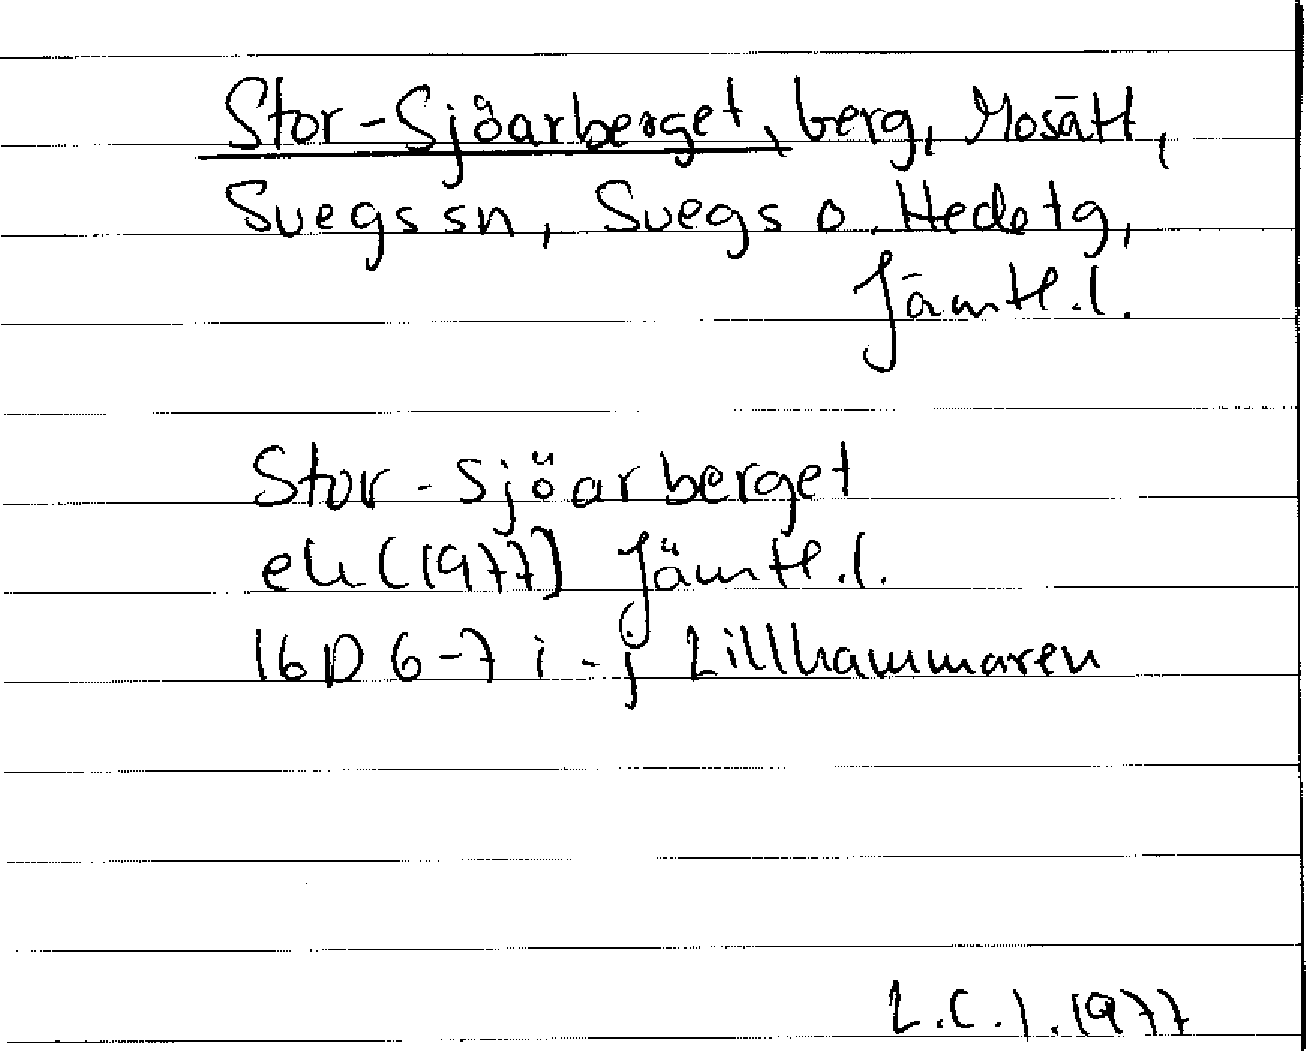 Stor-Sjöarberget, berg, Mosätt,
Svegs sn, Svegs o. Hede tg,
Jämtl.l.
Stor-Sjöarberget
ek (1977) Jämtl.l.
16D 6-7 i-j Lillhammaren
L.C.J.1977